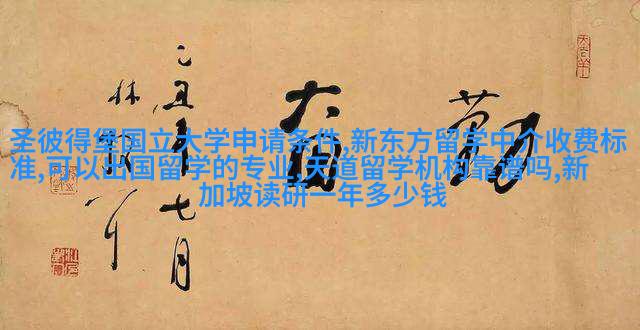 圣彼得堡国立大学申请条件,新东方留学中介收费标
准,可以出国留学的专业,天道留学机构靠谱吗,新
加坡读研一年多少钱
乙丑年七月